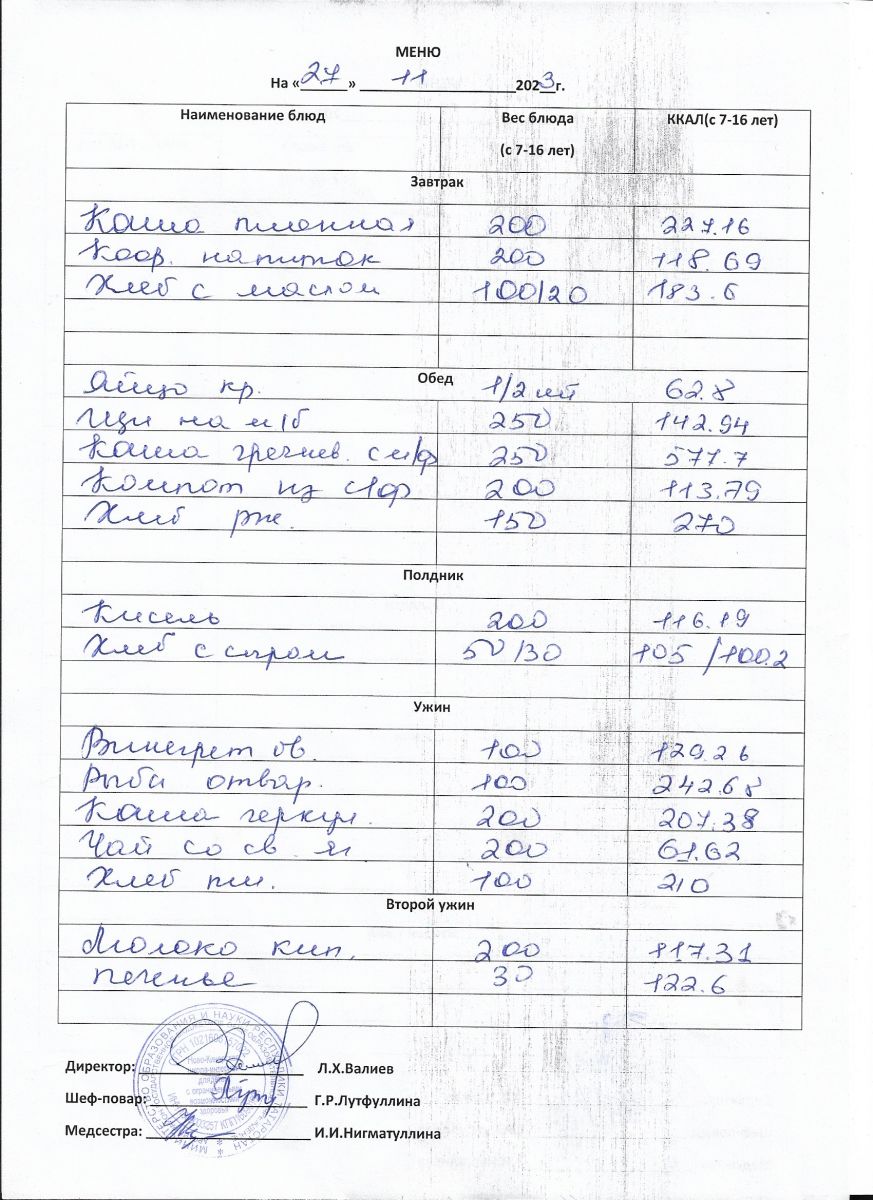 МЕНЮ
На «27» 11 2023г.
Наименование блюд Вес блюда (с 7-16 лет) ККАЛ(с 7-16 лет)
Завтрак
Каша пшенная 200 227.16
Коф. напиток 200 118.69
Хлеб с маслом 100/20 183.6
Обед
Яйцо кр. 1/2 шт 62.8
Щи на м/б 250 142.94
Каша гречнев. с м/ф 250 577.7
Компот из с/ф 200 113.79
Хлеб рж. 150 270
Полдник
Кисель 200 116.19
Хлеб с сыром 50/30 105/100.2
Ужин
Винегрет ов. 100 129.26
Рыба отвар. 100 242.68
Каша геркул. 200 207.38
Чай со св. я 200 61.62
Хлеб пш. 100 210
Второй ужин
Молоко кип. 200 117.31
печенье 30 122.6
Директор: Л.Х.Валиев
Шеф-повар: Г.Р.Лутфуллина
Медсестра: И.И.Нигматуллина